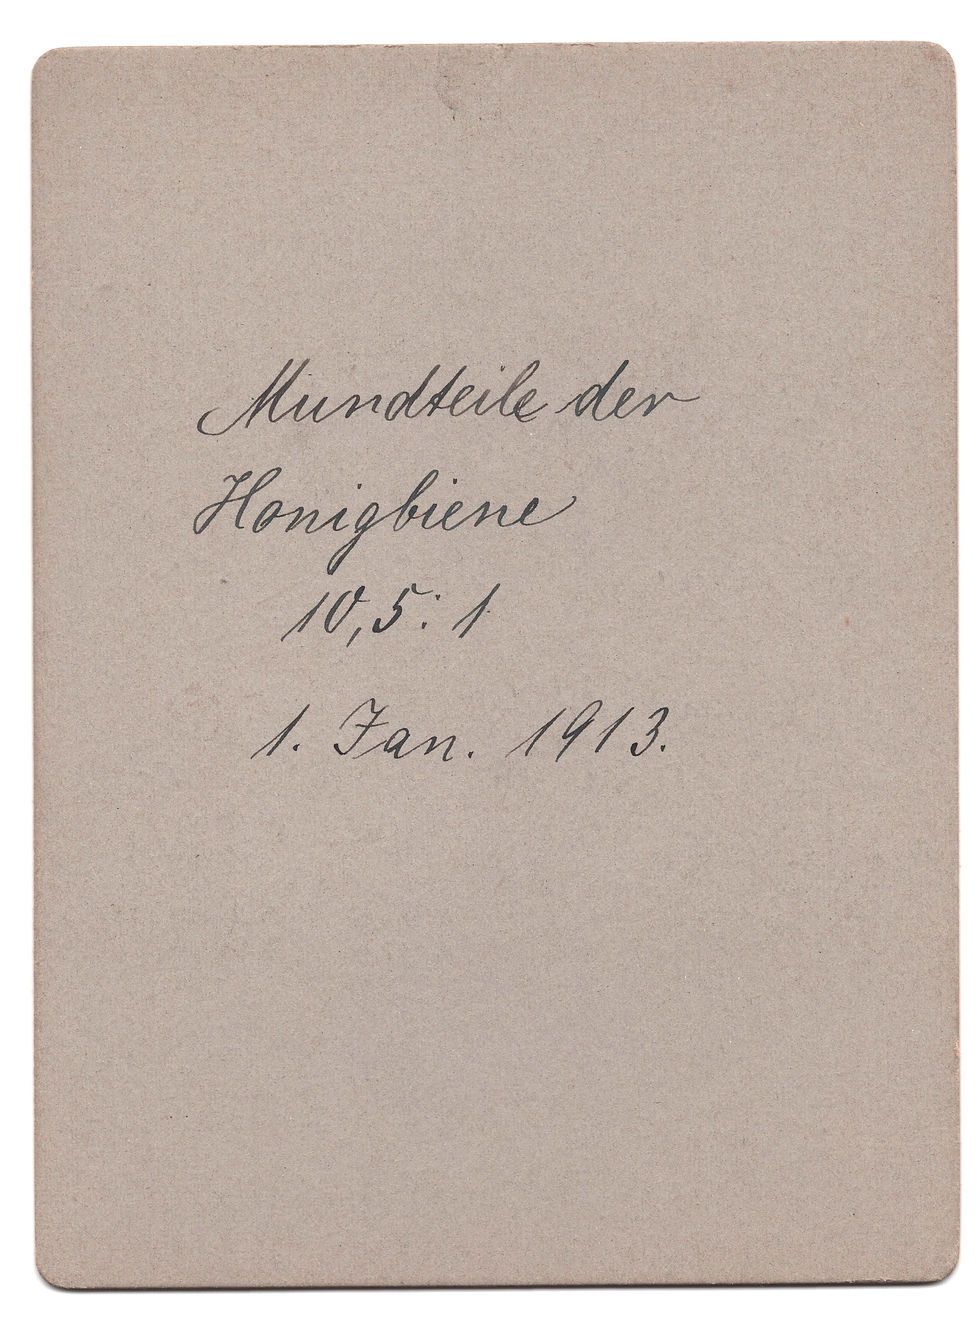 Mundteile der
Honigbiene
10,5:1
1. Jan. 1913.